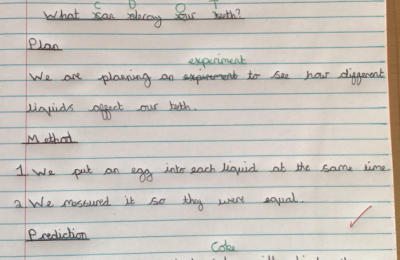 C D O T
What can decay our teeth?
Plan
experiment
We are planning an experiment to see how different
liquids affect our teeth.
Method
1. We put an egg into each liquid at the same time
2. We messured it so they were equal.
Prediction
Coke